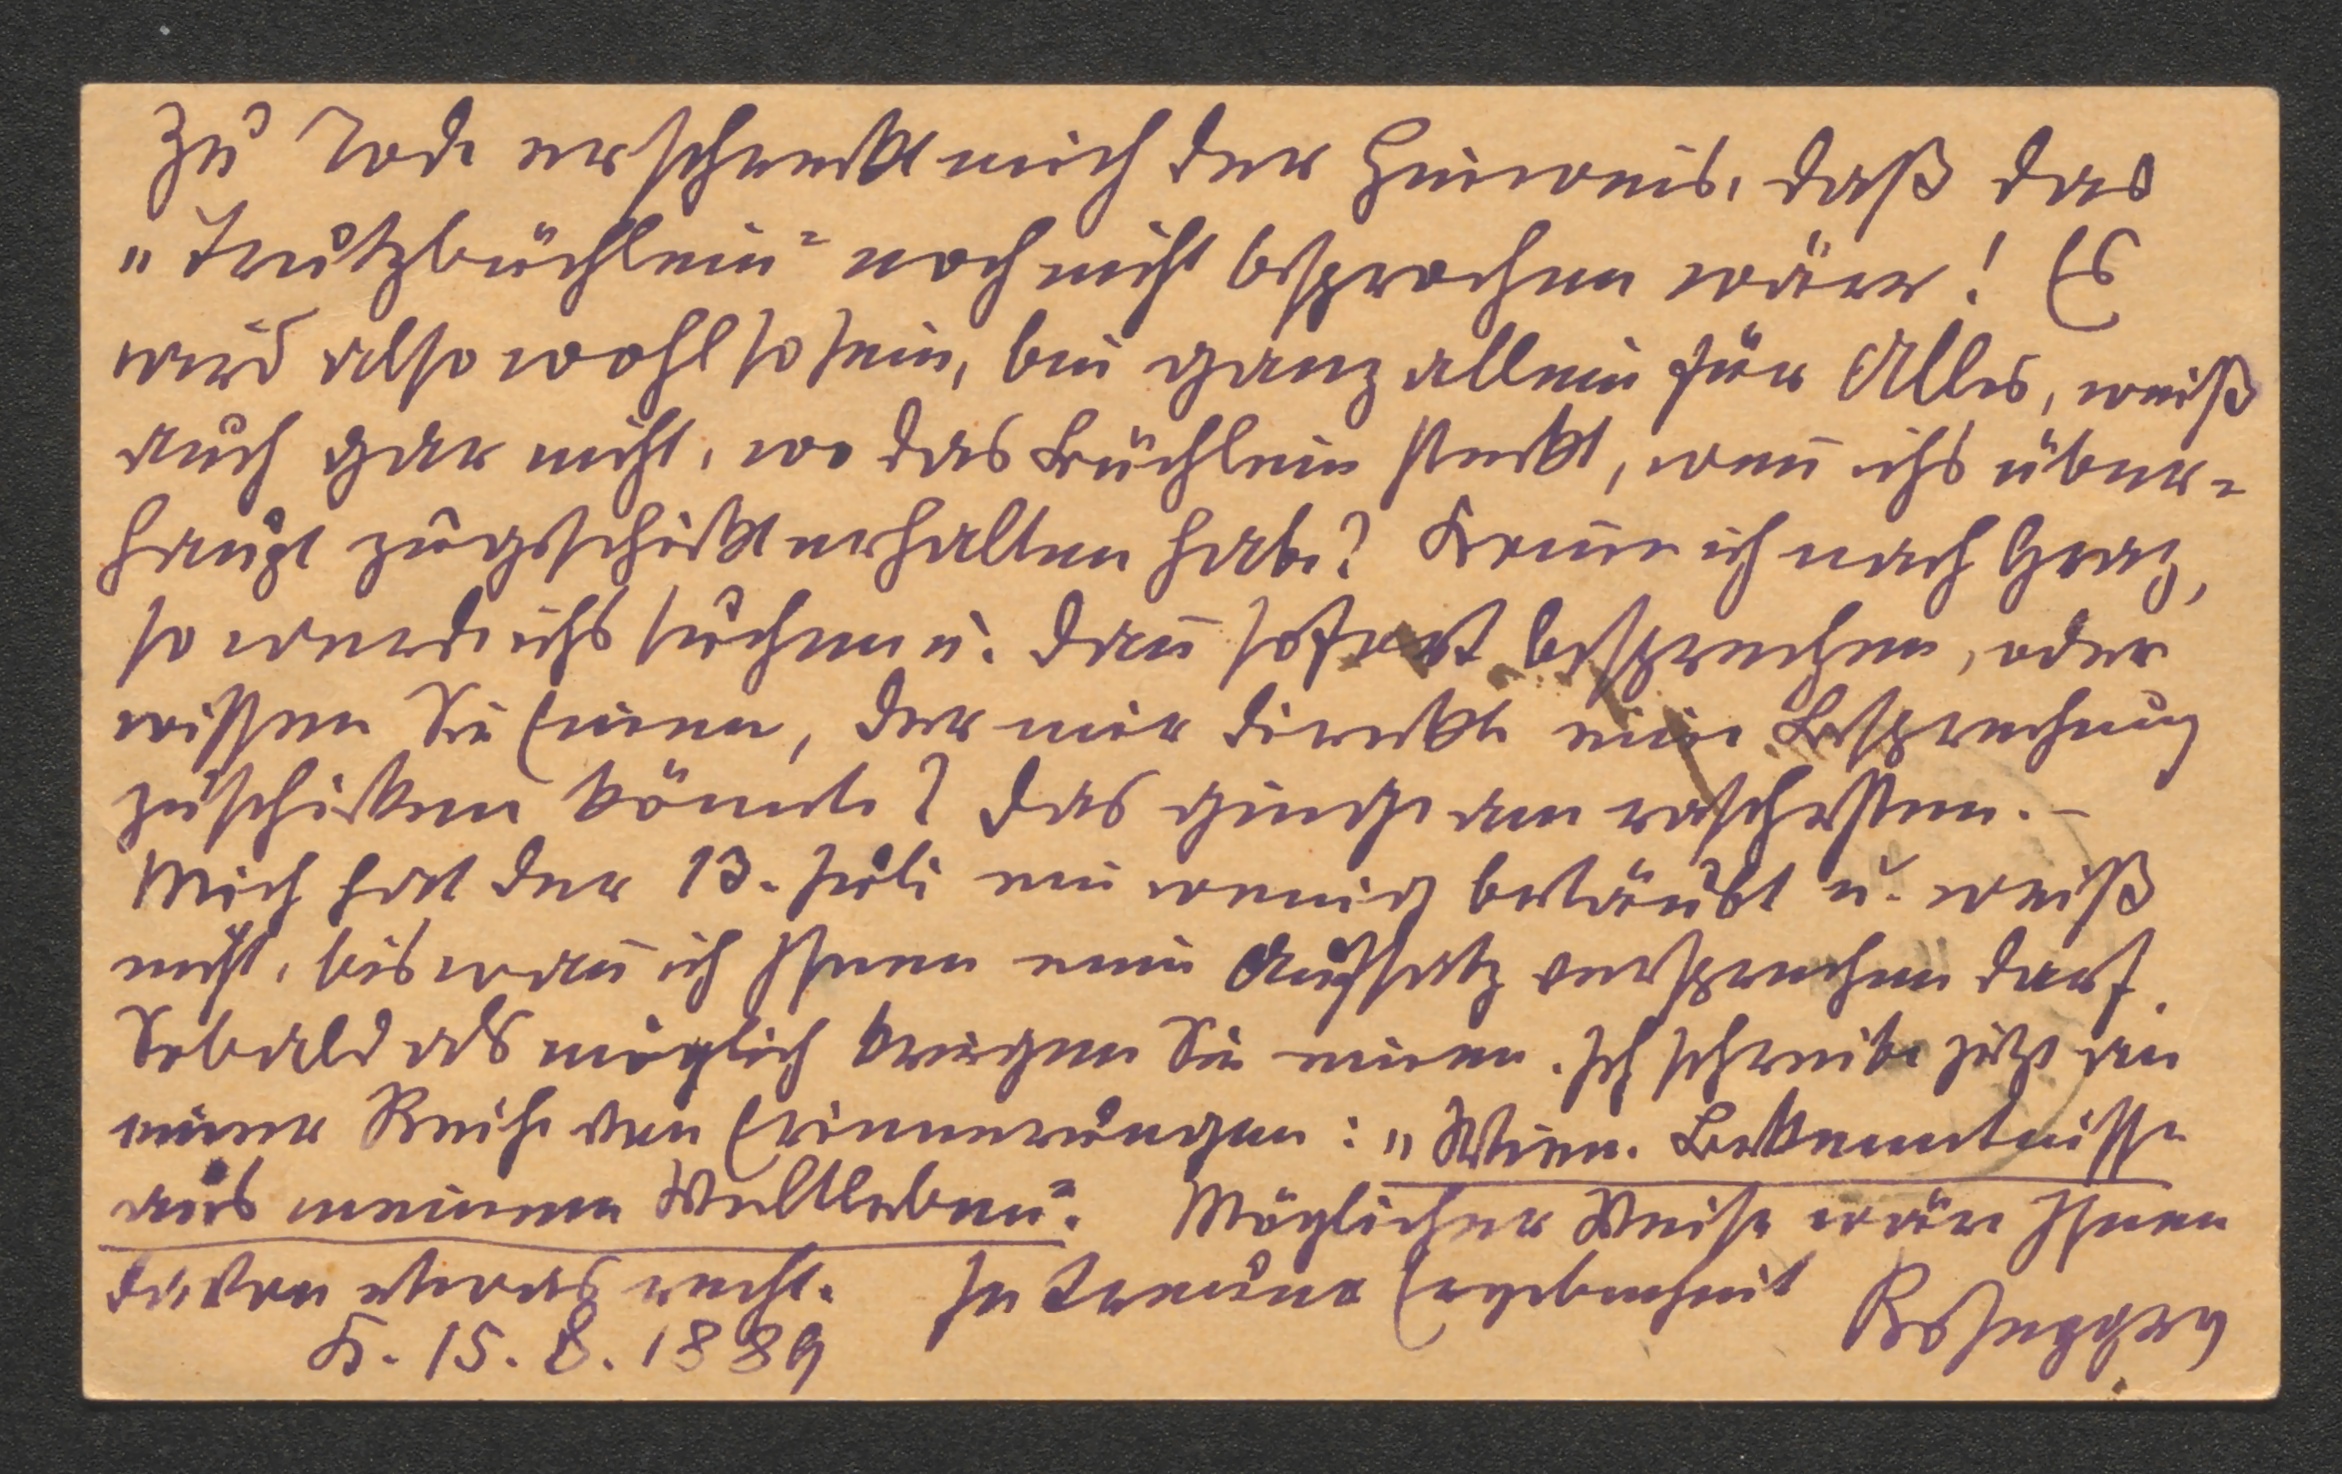 Zu Tode erschreckt mich der Hinweis, daß das
„Trutzbüchlein“ noch nicht besprochen wäre! Es
wird also wohl so sein, bin ganz allein für Alles, weiß
auch gar nicht, wo das Büchlein steckt, wen̄ ichs über-
haupt zugeschickt erhalten habe? Kom̄e ich nach Graz,
so werde ichs suchen u. dan̄ sofort besprechen, oder
wissen Sie Einen, der mir direkt eine Besprechung
zuschicken könnte? Das ginge am raschesten. –
Mich hat der 13. Juli ein wenig betäubt u. weiß
nicht, bis wan̄ ich Ihnen einen Aufsatz versprechen darf.
Sobald als möglich kriegen Sie einen. Ich schreibe jetzt an
einer Reihe von Erinnerungen: „Meine Bekenntnisse
aus meinem Weltleben“. Möglicher Weise wäre Ihnen
davon etwas recht. In treuer Ergebenheit Rosegger
K. 15. 8. 1889